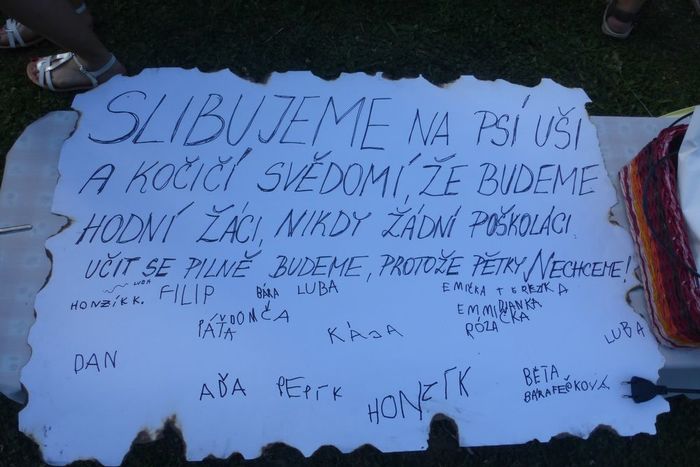 SLIBUJEME NA PSÍ UŠI
A KOČIČÍ SVĚDOMÍ, ŽE BUDEME
HODNÍ ŽÁCI, NIKDY ŽÁDNÍ POŠKOLÁCI.
UČIT SE PILNĚ BUDEME, PROTOŽE PĚTKY NECHCEME!
LUBA
HONZÍK K. FILIP BÁRA LUBA EMIČKA TEREZKA
PÁŤA DOMČA KÁJA EMMI DIANKA
RÓZA LUBA
DAN
AĎA PEPÍK HONZÍK BÉŤA
BÁRA PEŠKOVÁ